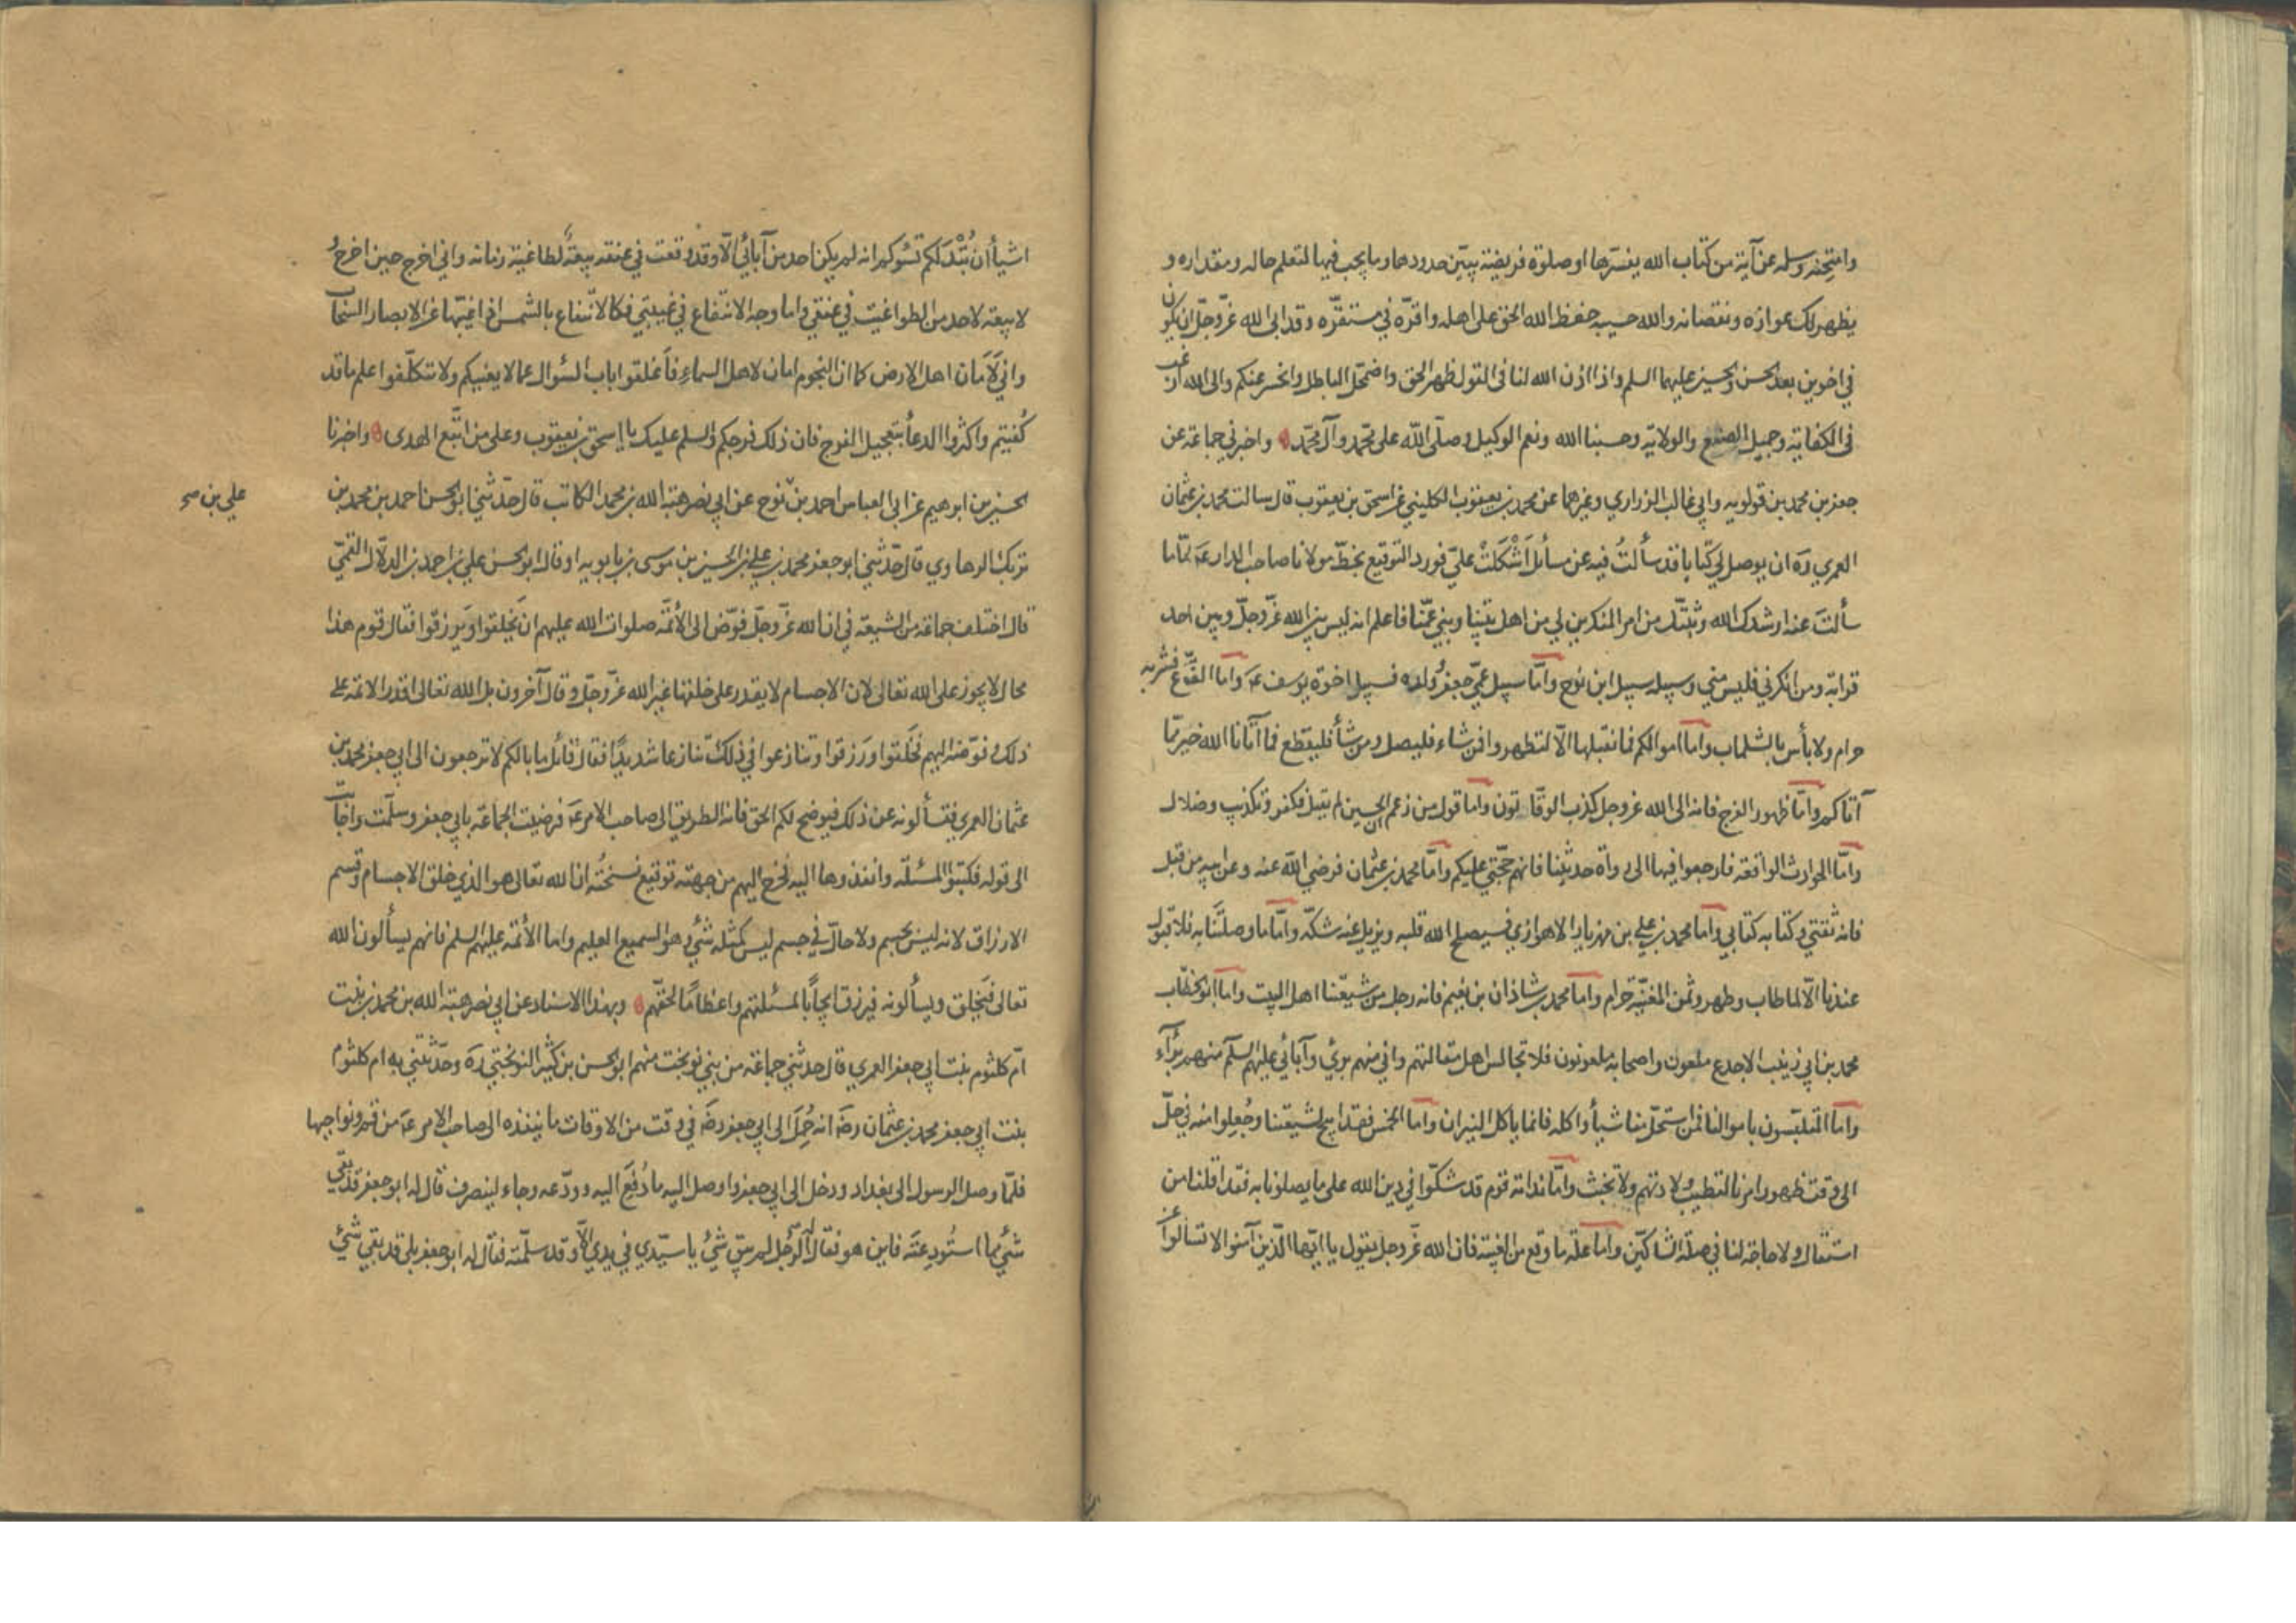 وامتحنه وسله عن آية من كتاب الله يفسرها او صلوة فريضة يبيّن حدودها وما يجب فيها لتعلم حاله ومقداره و
يظهر لك عواره ونقصانه والله حسيبه حفظ الله الحق على اهله واقرّه في مستقرّه وقد ابى الله عزّوجلّ ان يكون
في اخوين بعد الحسن والحسين عليهما السلم واذا اذن الله لنا في القول ظهر الحق واضمحلّ الباطل وانحسر عنكم والى الله ارغب
في الكفاية وجميل الصنع والولاية وحسبنا الله ونعم الوكيل وصلّى الله على محمّد وآل محمّد واخبرني جماعة عن
جعفر بن محمد بن قولويه وابي غالب الزراري وغيرهما عن محمد بن يعقوب الكليني عن اسحق بن يعقوب قال سالت محمد بن عثمان
العمري ره ان يوصل لي كتابا قد سألتُ فيه عن مسائل اَشْكَلَتْ عليّ فورد التوقيع بخطّ مولانا صاحب الدار عَ امّا ما
سألتَ عنه ارشدك الله وثبّتك من امر المنكرين لي من اهل بيتنا وبني عمّنا فاعلم انه ليس بين الله عزّوجلّ وبين احد
قرابة ومن انكرني فليس منّي وسبيله سبيل ابن نوح وامّا سبيل عمّي جعفر وولده فسبيل اخوة يوسف عَ واما الفقّاع فشربه
حرام ولا بأس بالشلماب واما اموالكم فما نقبلها الّا لتطهروا فمن شاء فليصل ومن شأ فليقطع فما آتانا الله خير ممّا
آتاكم وامّا ظهور الفرج فانه الى الله عزوجل كذب الوقّاتون واما قول من زعم ان الحسين لم يقتل فكفر وتكذيب وضلال
وامّا الحوادث الواقعة فارجعوا فيها الى رواة حديثنا فانهم حجّتي عليكم وامّا محمد بن عثمان فرضي الله عنه وعن ابيه من قبل
فانه ثقتي وكتابه كتابي واما محمد بن علي بن مهزيار الاهوازي فسيصلح الله قلبه ويزيل عنه شكّه وامّا ما وصلتَنا به فلا قبول
عندنا الّا لما طاب وطهر وثمن المغنيّة حرام واما محمد بن شاذان بن نعيم فانه رجل من شيعتنا اهل البيت واما ابو الخطّاب
محمد بن ابي زينب الاجدع ملعون واصحابه ملعونون فلا تجالس اهل مقالتهم واني منهم برئ وآبائي عليهم السلم منهم برٓاء
واما المتلبّسون باموالنا فمن استحلّ منا شيأ واكله فانما ياكل النيران واما الخمس فقد ابيح لشيعتنا وجُعِلوا منه في حلّ
الى وقت ظهور امرنا لتطيب ولادتهم ولا تخبث وامّا ندامة قوم قد شكّوا في دين الله على ما يصلونا به فقد اقلنا من
استقال ولا حاجة لنا في صلة الشاكّين واما علّة ما وقع من الغيبة فان الله عزّوجل يقول يا ايّها الّذين آمنوا لا تسألوا عن
اشيأ ان تُبْدَ لكم تسُؤكم انه لم يكن احد من آبائي الّا وقد وقعت في عنقه بيعةٌ لطاغية زمانه واني اخرج حين اخرج و
لا بيعة لاحد من الطواغيت في عنقي واما وجه الانتفاع في غيبتي فكالانتفاع بالشمس اذا غيّبها عن الابصار السحاب
واني لَاَمان اهل الارض كما ان النجوم امان لاهل السماء فاَغلقوا باب السؤال عما لا يعنيكم ولا تتكلّفوا علم ما قد
كُفيتم واكثروا الدعأ بتعجيل الفرج فان ذلك فرجكم والسلم عليك يا اسحق بن يعقوب وعلى من اتّبع الهدى واخبرنا
الحسين بن ابرهيم عن ابى العباس احمد بن نوح عن ابي نصر هبة الله بن محمد الكاتب قال حدّثني ابو الحسن احمد بن محمد بن
علي بن صح
تربك الرهاوي قال حدّثني ابو جعفر محمد بن علي بن الحسين بن موسى بن بابويه او قال ابو الحسن علي بن احمد بن الدلّال القمّي
قال اختلف جماعة من الشيعة في ان الله عزّوجلّ فوّض الى الأئمّة صلوات الله عليهم ان يَخلقوا ويَرزقوا فقال قوم هذا
محال لا يجوز على الله تعالى لان الاجسام لا يقدر على خلقها غير الله عزّوجلّ وقال آخرون بل الله تعالى اقدر الائمة على
ذلك وفوّضه اليهم فخَلَقوا ورَزقوا وتنازعوا في ذلك تنازعا شديدًا فقال قائل ما بالكم لا ترجعون الى ابي جعفر محمد بن
عثمان العمري فتسألونه عن ذلك فيوضح لكم الحق فانه الطريق الى صاحب الامر عَ فرضيت الجماعة بابي جعفر وسلّمت واجابت
الى قوله فكتبوا المسئلة وانفذوها اليه فخرج اليهم من جهته توقيع نسختُه ان الله تعالى هو الذي خلق الاجسام وقسم
الارزاق لانه ليس بجسم ولا حالّ في جسم ليس كمثله شئ وهو السميع العليم واما الأئمة عليهم السلم فانهم يسألون الله
تعالى فيَخلق ويسألونه فيرزق ايجابًا لمسئلتهم واعظامًا لحقّهم وبهذا الاسناد عن ابي نصر هبة الله بن محمد بن بنت
امّ كلثوم بنت ابي جعفر العمري قال حدثني جماعة من بني نوبخت منهم ابو الحسن بن كثير النوبختي رَه وحدّثتني به ام كلثوم
بنت ابي جعفر محمد بن عثمان رضَ انه حُمِلَ الى ابي جعفر رضَ في وقت من الاوقات ما ينفذه الى صاحب الامر عَ من قم ونواحيها
فلمّا وصل الرسول الى بغداد ودخل الى ابي جعفر واوصل اليه ما دُفِعَ اليه وودّعه وجاء لينصرف قال له ابو جعفر قد بقي
شئ مما استُودِعتَه فاين هو فقال له الرّجل لم يبق شئ يا سيّدي في يدي الّا وقد سلّمته فقال له ابو جعفر بلى قد بقي شئ